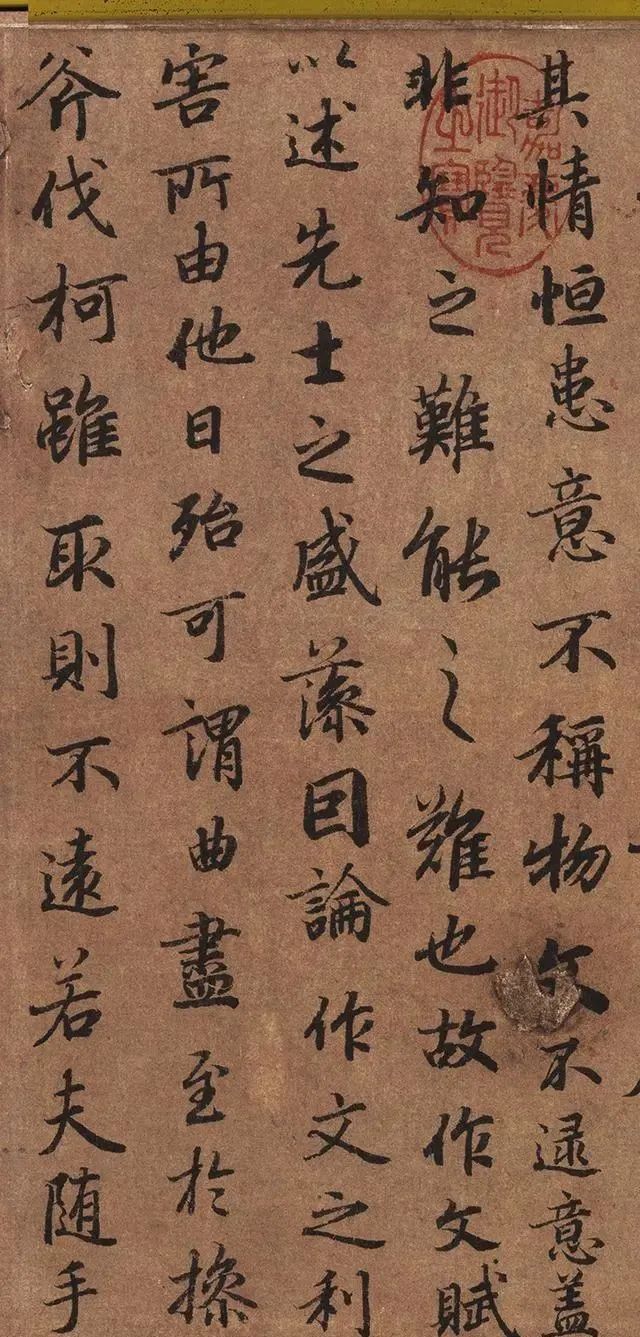 其情恒患意不稱物文不逮意盖
非知之難能之難也故作文賦
以述先士之盛藻因論作文之利
害所由他日殆可謂曲盡至於操
斧伐柯雖取則不遠若夫随手
嘉慶御覽之寶